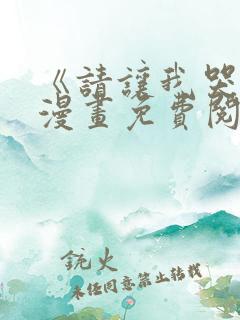 《請讓我哭
漫畫免費閱
銃火
未经同意禁止转载